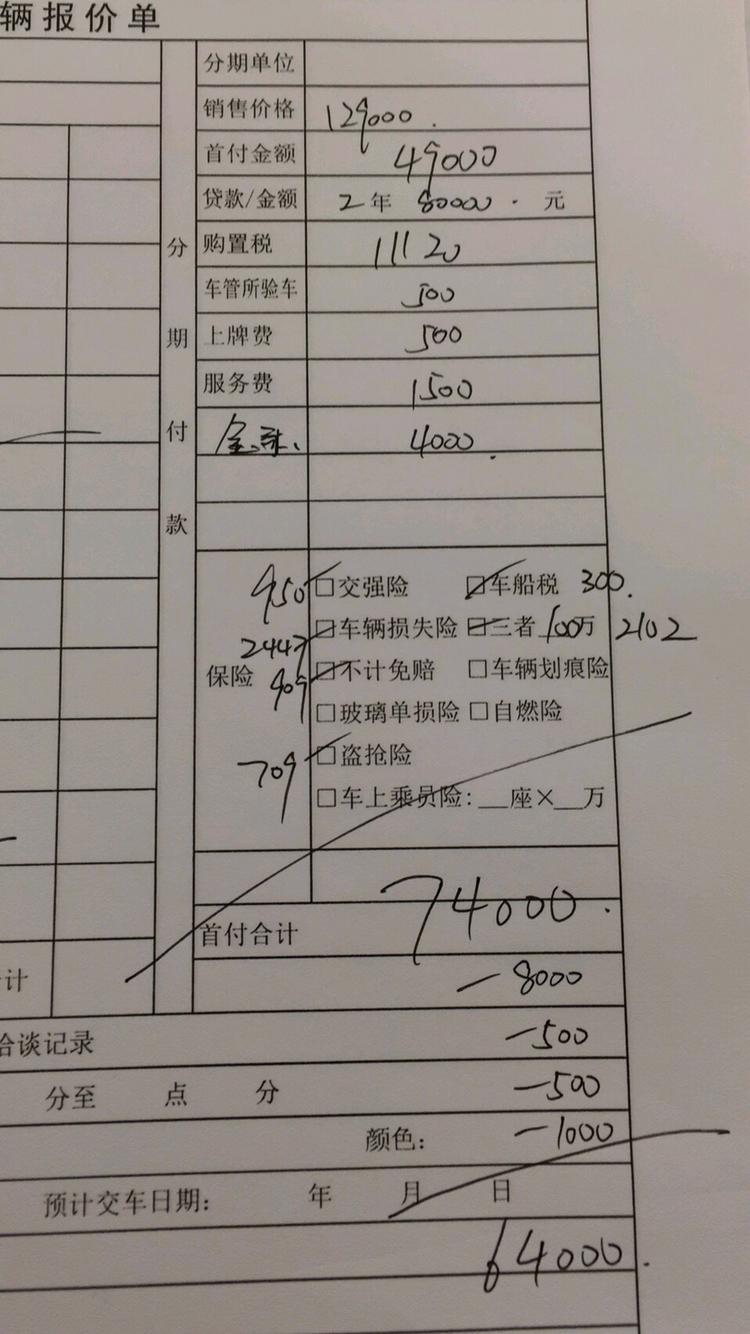 辆报价单
分期付款
分期单位
销售价格 129000.
首付金额 49000
贷款/金额 2年 80000. 元
购置税 11120
车管所验车 500
上牌费 500
服务费 1500
4000.
保险
950 □交强险 □车船税 300.
2447 □车辆损失险 □三者100万 2102
909 □不计免赔 □车辆划痕险
□玻璃单损险 □自燃险
709 □盗抢险
□车上乘员险:__座×__万
首付合计 74000.
计 -8000
洽谈记录 -500
分至 点 分 -500
颜色: -1000
预计交车日期: 年 月 日
64000.